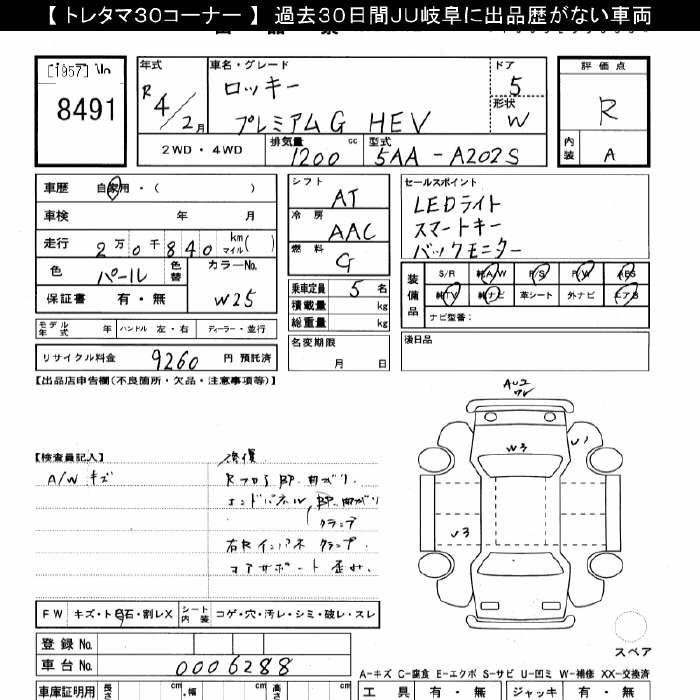 【 トレタマ30コーナー 】 過去30日間JU岐阜に出品歴がない車両
[1957]
8491
年式
R4/2月
車名・グレード
ロッキー
プレミアムG HEV
ドア
5
形状
W
評価点
R
内装
A
2WD・4WD
排気量
1200 cc
型式
5AA-A202S
車歴 自家用・( )
車検 年 月
走行 2万0千840 km マイル( )
色 パール 色替
カラーNo.
W25
保証書 有・無
シフト
AT
冷房
AAC
燃料
G
乗車定員 5 名
積載量 kg
総重量 kg
セールスポイント
LEDライト
スマートキー
バックモニター
装備品
S/R 純A/W P/S P/W ABS
純TV 純ナビ 革シート 外ナビ エアB
ナビ型番:
モデル年式 年 ハンドル 左・右 ディーラー・並行
リサイクル料金 9260 円 預託済
名変期限
月 日
後日品
【出品店申告欄(不良箇所・欠品・注意事項等)】
【検査員記入】
A/W キズ
修復
RフロS BP 曲がり
エンドパネル BP 曲がり
クランプ
右Rインパネ クランプ
コアサポート 歪み
AU2
W3
U1
U3
FW キズ・ト石・割レX シート内装 コゲ・穴・汚レ・シミ・破レ・スレ
登録No.
車台No. 0006288
スペア
A-キズ C-腐食 E-エクボ S-サビ U-凹ミ W-補修 XX-交換済
車庫証明用 長さ cm 幅 cm 高さ cm
工具 有・無 ジャッキ 有・無